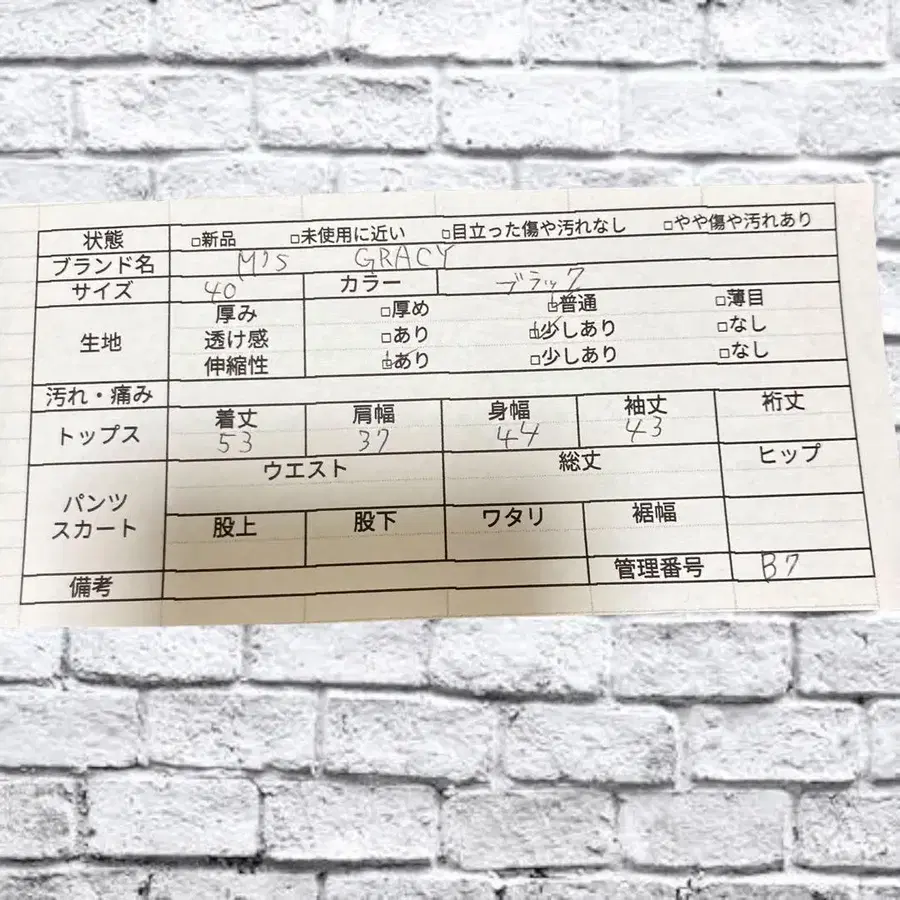 状態 □新品 □未使用に近い □目立った傷や汚れなし □やや傷や汚れあり
ブランド名 M'S GRACY
サイズ 40 カラー ブラック
生地 厚み □厚め ☑普通 □薄目
透け感 □あり ☑少しあり □なし
伸縮性 ☑あり □少しあり □なし
汚れ・痛み
トップス 着丈 肩幅 身幅 袖丈 裄丈
53 37 44 43
パンツ スカート ウエスト 総丈 ヒップ
股上 股下 ワタリ 裾幅
備考 管理番号 B7